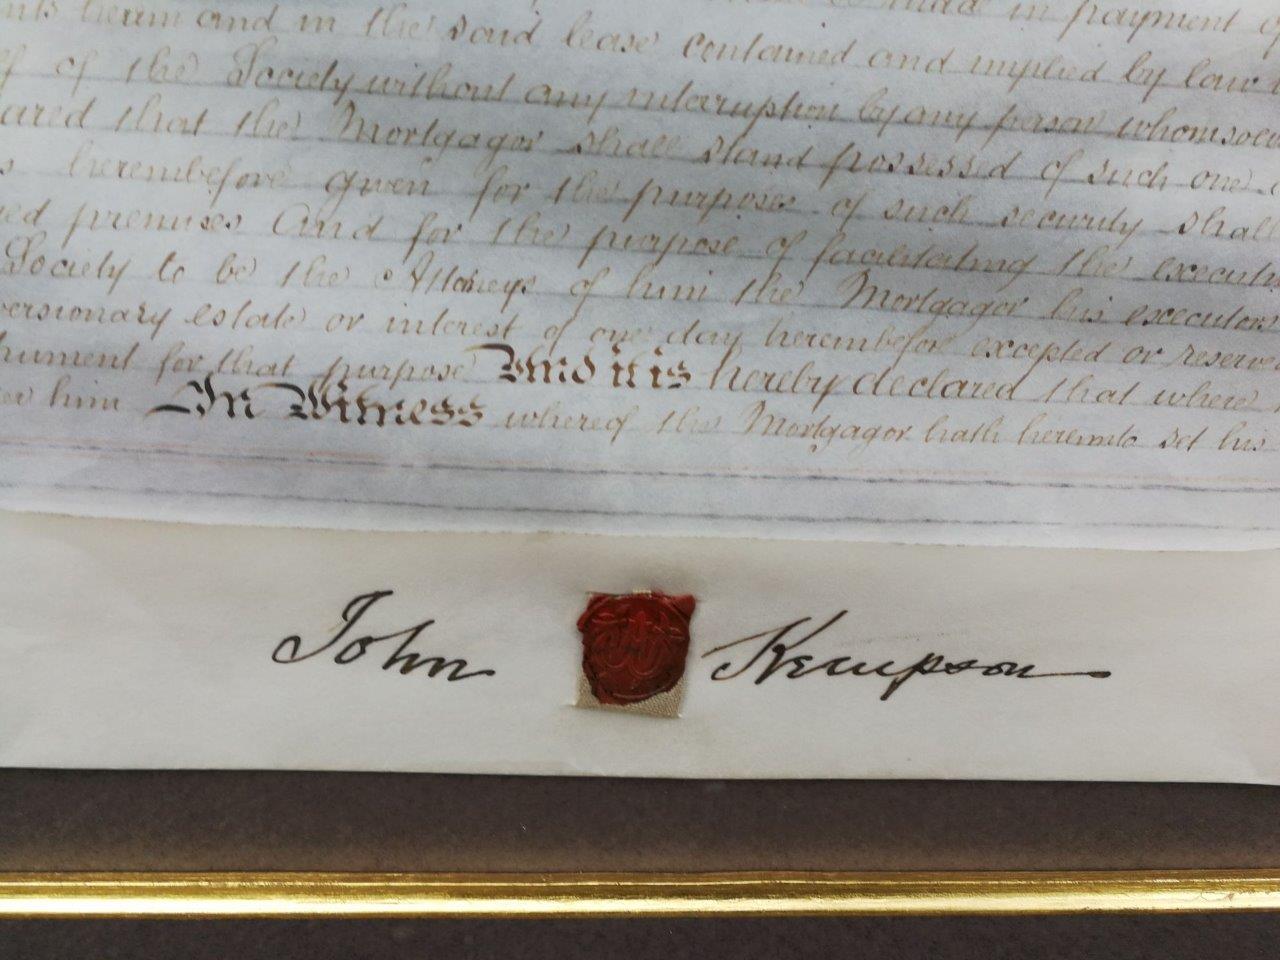 made in payment of
herein and in the said lease contained and implied by law
of the Society without any interruption by any person whomsoever
that the Mortgagor shall stand possessed of such one
hereinbefore given for the purposes of such security shall
premises And for the purpose of facilitating the
Society to be the Attorneys of him the Mortgagor his executors
estate or interest of one day hereinbefore excepted or
for that purpose And it is hereby declared that where
him In Witness whereof the Mortgagor hath hereunto set his
John Kempson